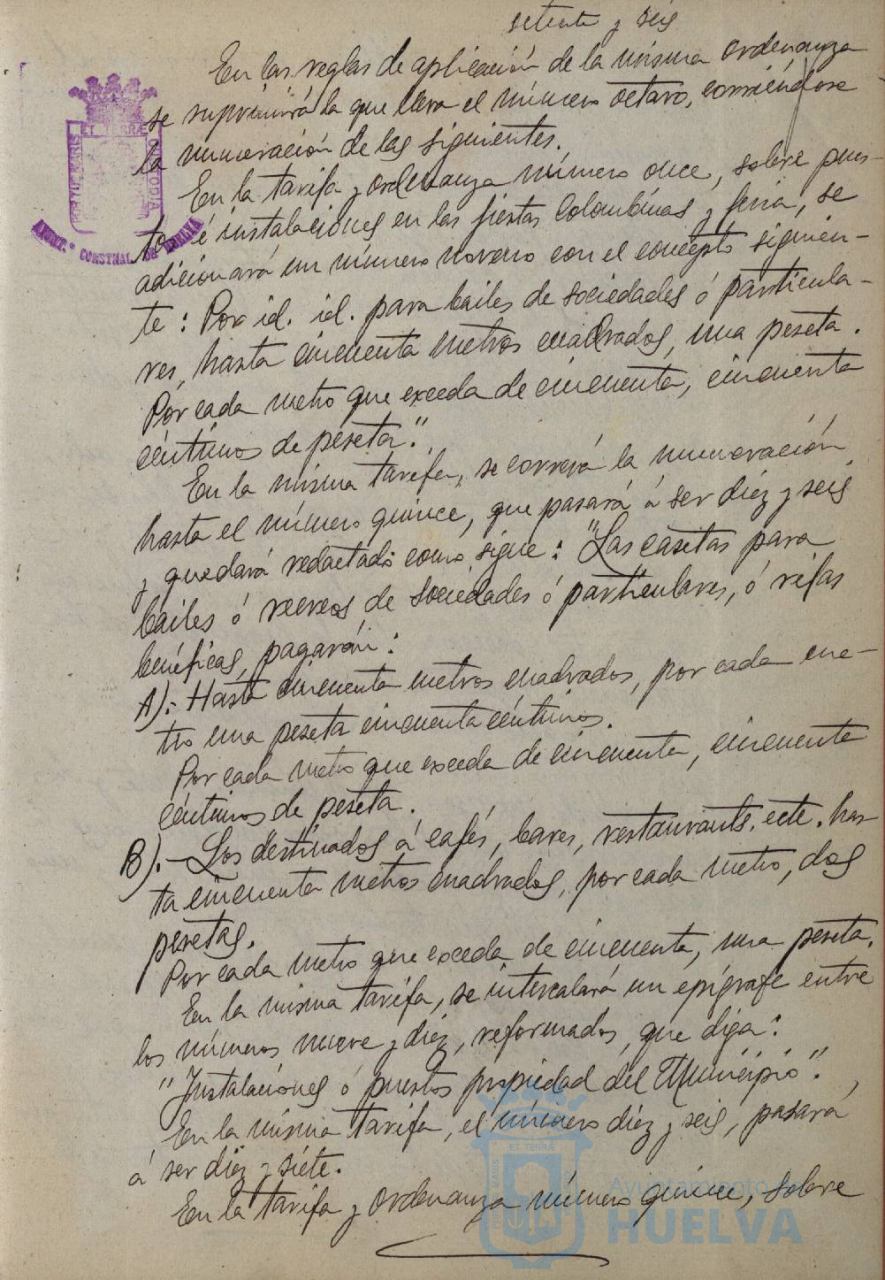 setenta y seis
En las reglas de aplicación de la misma ordenanza
se suprimirá la que lleva el número octavo, corriéndose
la numeración de las siguientes.
En la tarifa y ordenanza número once, sobre pues-
tos é instalaciones en las fiestas Colombinas y feria, se
adicionará un número noveno con el concepto siguien-
te: Por id. id. para bailes de sociedades ó particula-
res, hasta cincuenta metros cuadrados, una peseta.
Por cada metro que exceda de cincuenta, cincuenta
céntimos de peseta".
En la misma tarifa, se correrá la numeración
hasta el número quince, que pasará á ser diez y seis
y quedará redactado como sigue: "Las casetas para
bailes ó recreos de sociedades ó particulares, ó rifas
benéficas, pagarán:
A).- Hasta cincuenta metros cuadrados, por cada me-
tro una peseta cincuenta céntimos.
Por cada metro que exceda de cincuenta, cincuenta
céntimos de peseta.
B).- Los destinados á cafés, bares, restaurants. ecte. has-
ta cincuenta metros cuadrados, por cada metro, dos
pesetas.
Por cada metro que exceda de cincuenta, una peseta.
En la misma tarifa, se intercalará un epígrafe entre
los números nueve y diez, reformados, que diga:
"Instalaciones ó puestos propiedad del Municipio".
En la misma tarifa, el número diez y seis, pasará
á ser diez y siete.
En la tarifa y ordenanza número quince, sobre
PORTUS MARIS
ET TERRÆ
CUSTODIA
AYUNT.º CONSTNAL. DE HUELVA
Ayuntamiento de
HUELVA